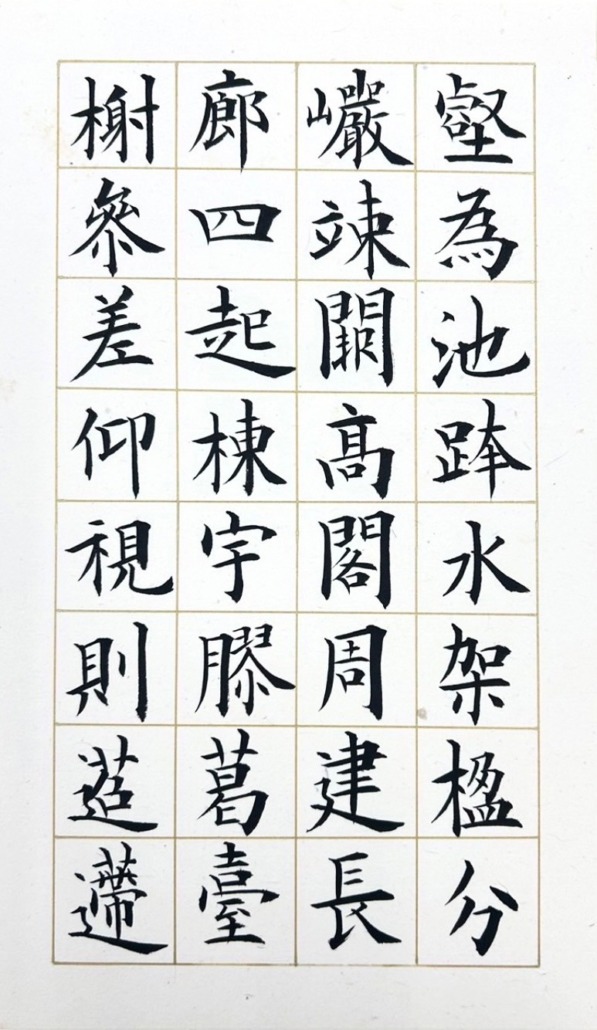 壑為池跨水架楹分
巗竦闕髙閣周建長
廊四起棟宇膠葛臺
榭參差仰視則迢遰